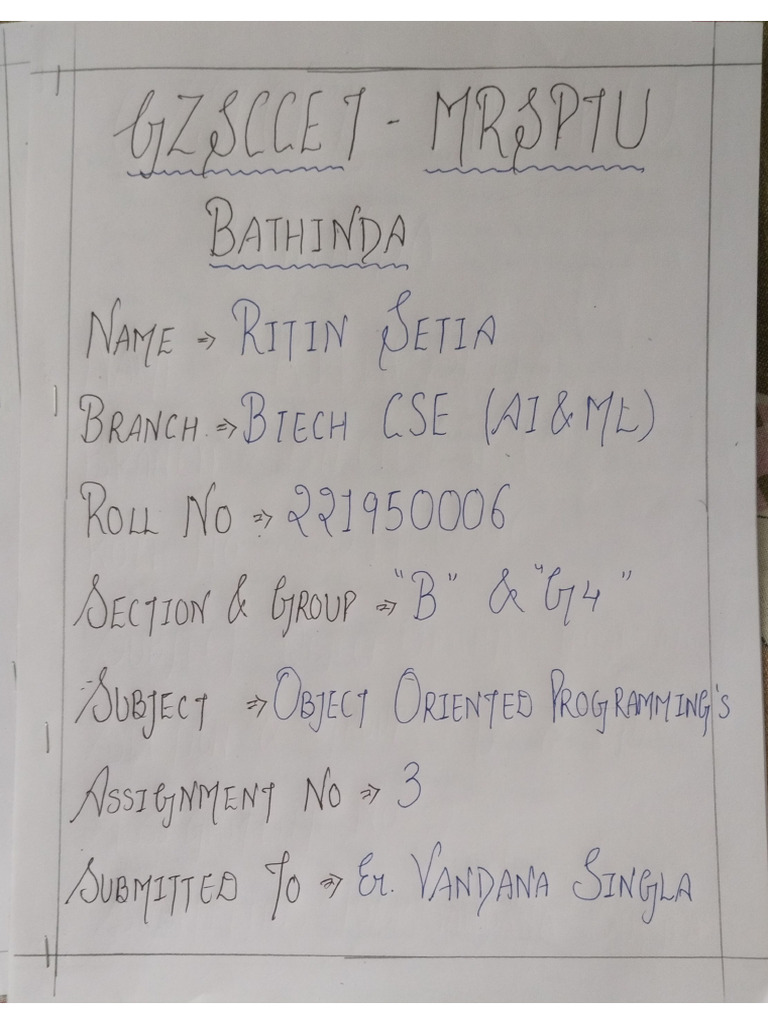 GZSCCET - MRSPTU
BATHINDA
NAME ⇒ RITIN SETIA
BRANCH ⇒ BTECH CSE (AI & ML)
ROLL NO ⇒ 221950006
SECTION & GROUP ⇒ "B" & "G4"
SUBJECT ⇒ OBJECT ORIENTED PROGRAMMING'S
ASSIGNMENT NO ⇒ 3
SUBMITTED TO ⇒ Er. VANDANA SINGLA